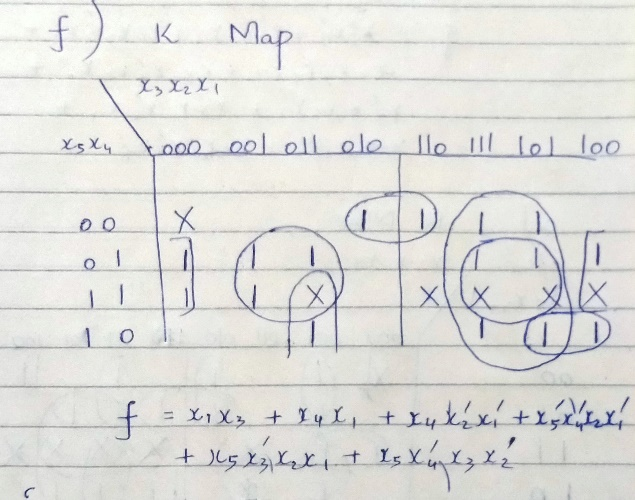 f) K Map
x₃x₂x₁
x₅x₄ 000 001 011 010 110 111 101 100
00 X 1 1 1 1
01 1 1 1 1 1 1
11 1 1 X X X X X
10 1 1 1 1
f = x₁x₃ + x₄x₁ + x₄x₂'x₁' + x₅'x₄'x₂x₁'
+ x₅x₃'x₂x₁ + x₅x₄'x₃x₂'